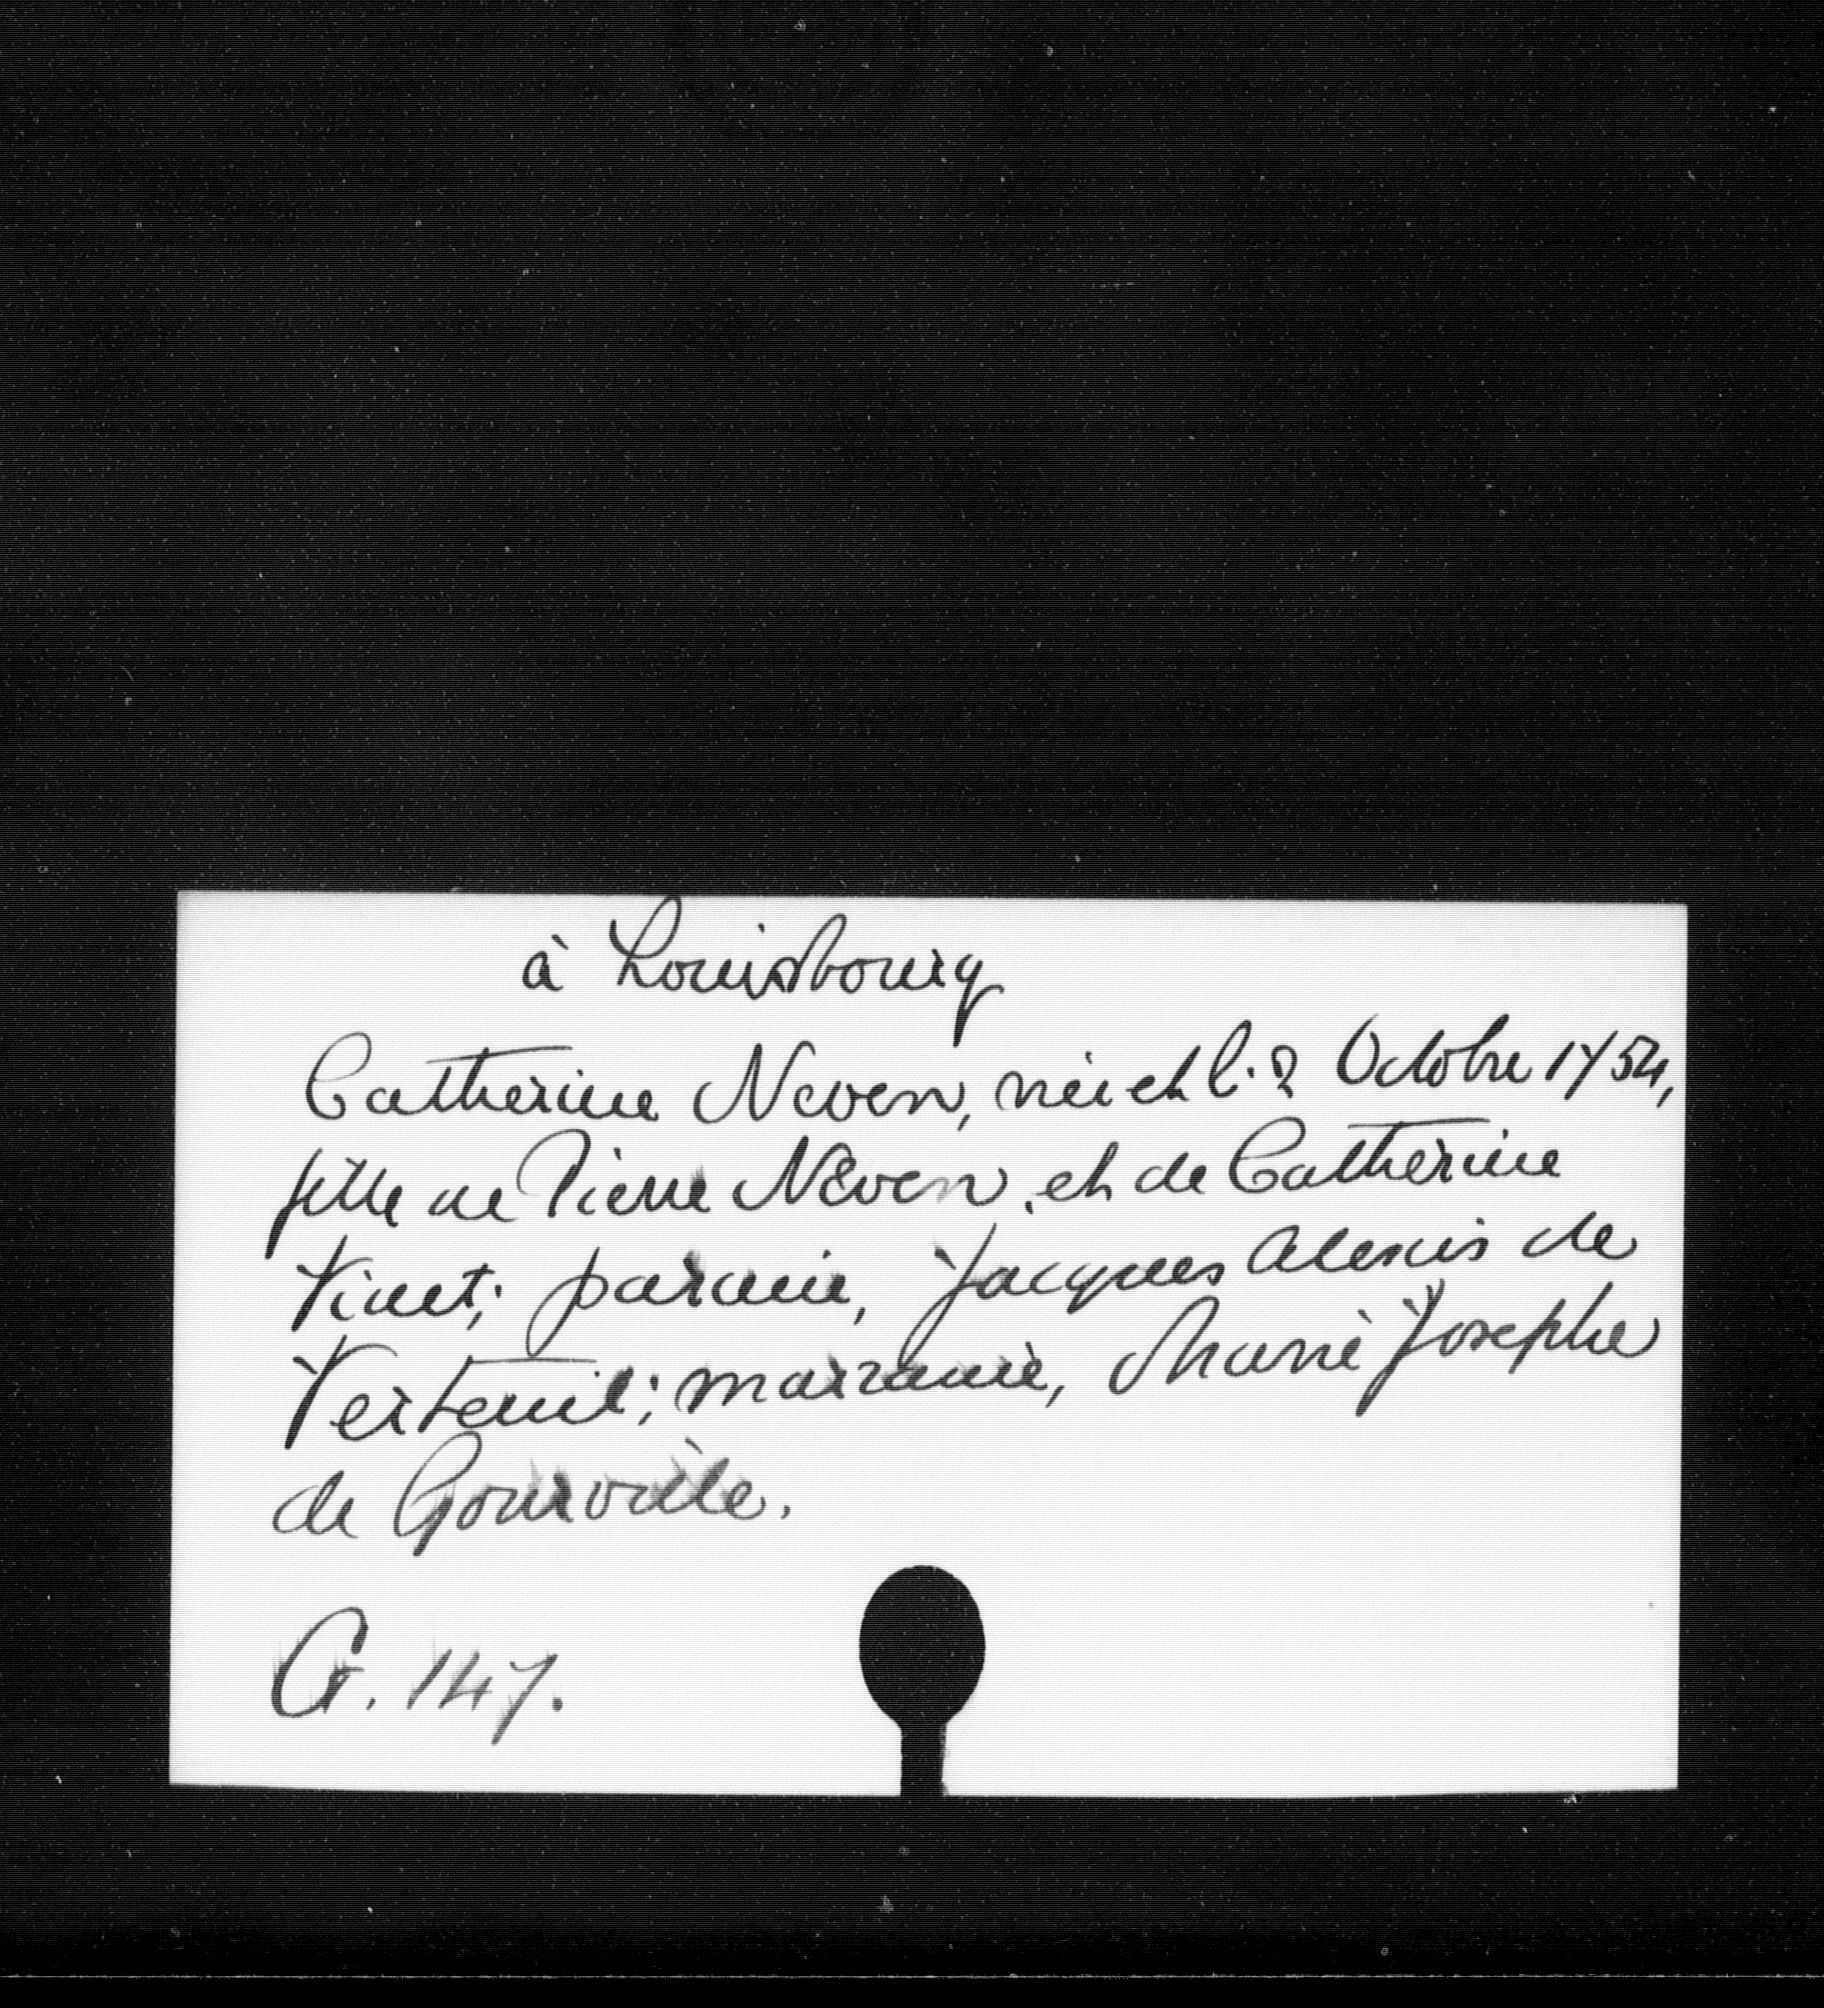 à Louisbourg
Catherine Neven, née et b. 2 Octobre 1754,
fille de Pierre Neven, et de Catherine
Vinet; parain, Jacques Alexis de
Verteuil; marraine, Marie Josephe
de Gourville.
G. 147.